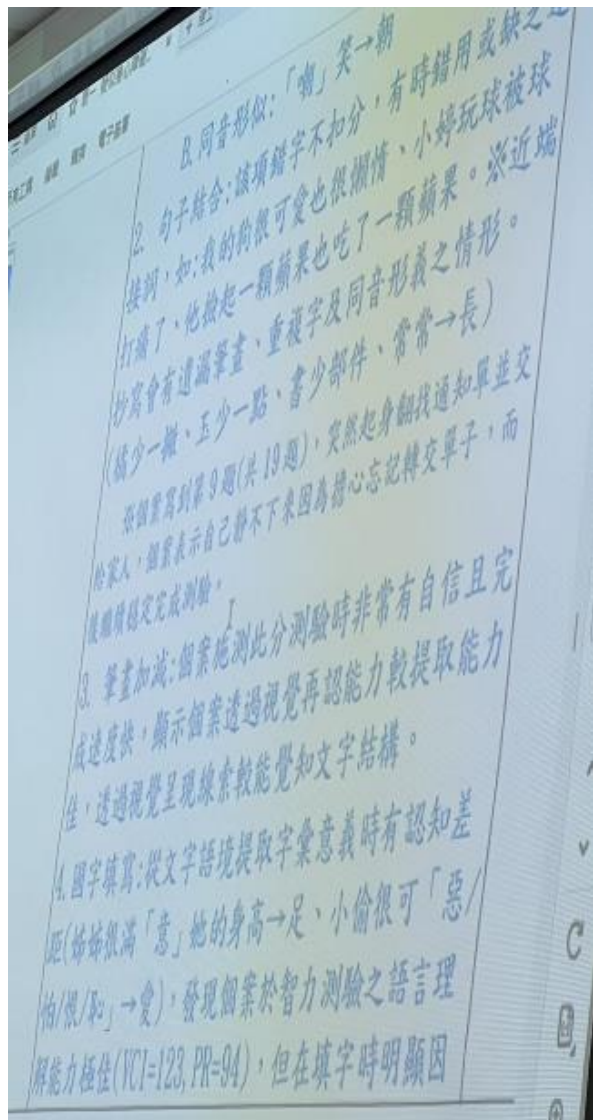 電子品管
B.同音形似:「嘲」笑→朝
2. 句子結合:該項錯字不扣分，有時錯用或缺之連
接詞，如:我的狗很可愛也很懶惰、小婷玩球被球
打痛了、他撿起一顆蘋果也吃了一顆蘋果。※近端
抄寫會有遺漏筆畫、重複字及同音形義之情形。
(橘少一撇、玉少一點、書少部件、常常→長)
個案寫到第9題(共19題)，突然起身翻找通知單並交
給家人，個案表示自己靜不下來因為擔心忘記轉交單子，而
後繼續穩定完成測驗。
3. 筆畫加減:個案施測此分測驗時非常有自信且完
成速度快，顯示個案透過視覺再認能力較提取能力
佳，透過視覺呈現線索較能覺知文字結構。
4.國字填寫:從文字語境提取字彙意義時有認知差
距(姊姊很滿「意」她的身高→足、小偷很可「惡/
怕/恨/恥」→愛)，發現個案於智力測驗之語言理
解能力極佳(VCI=123, PR=94)，但在填字時明顯因